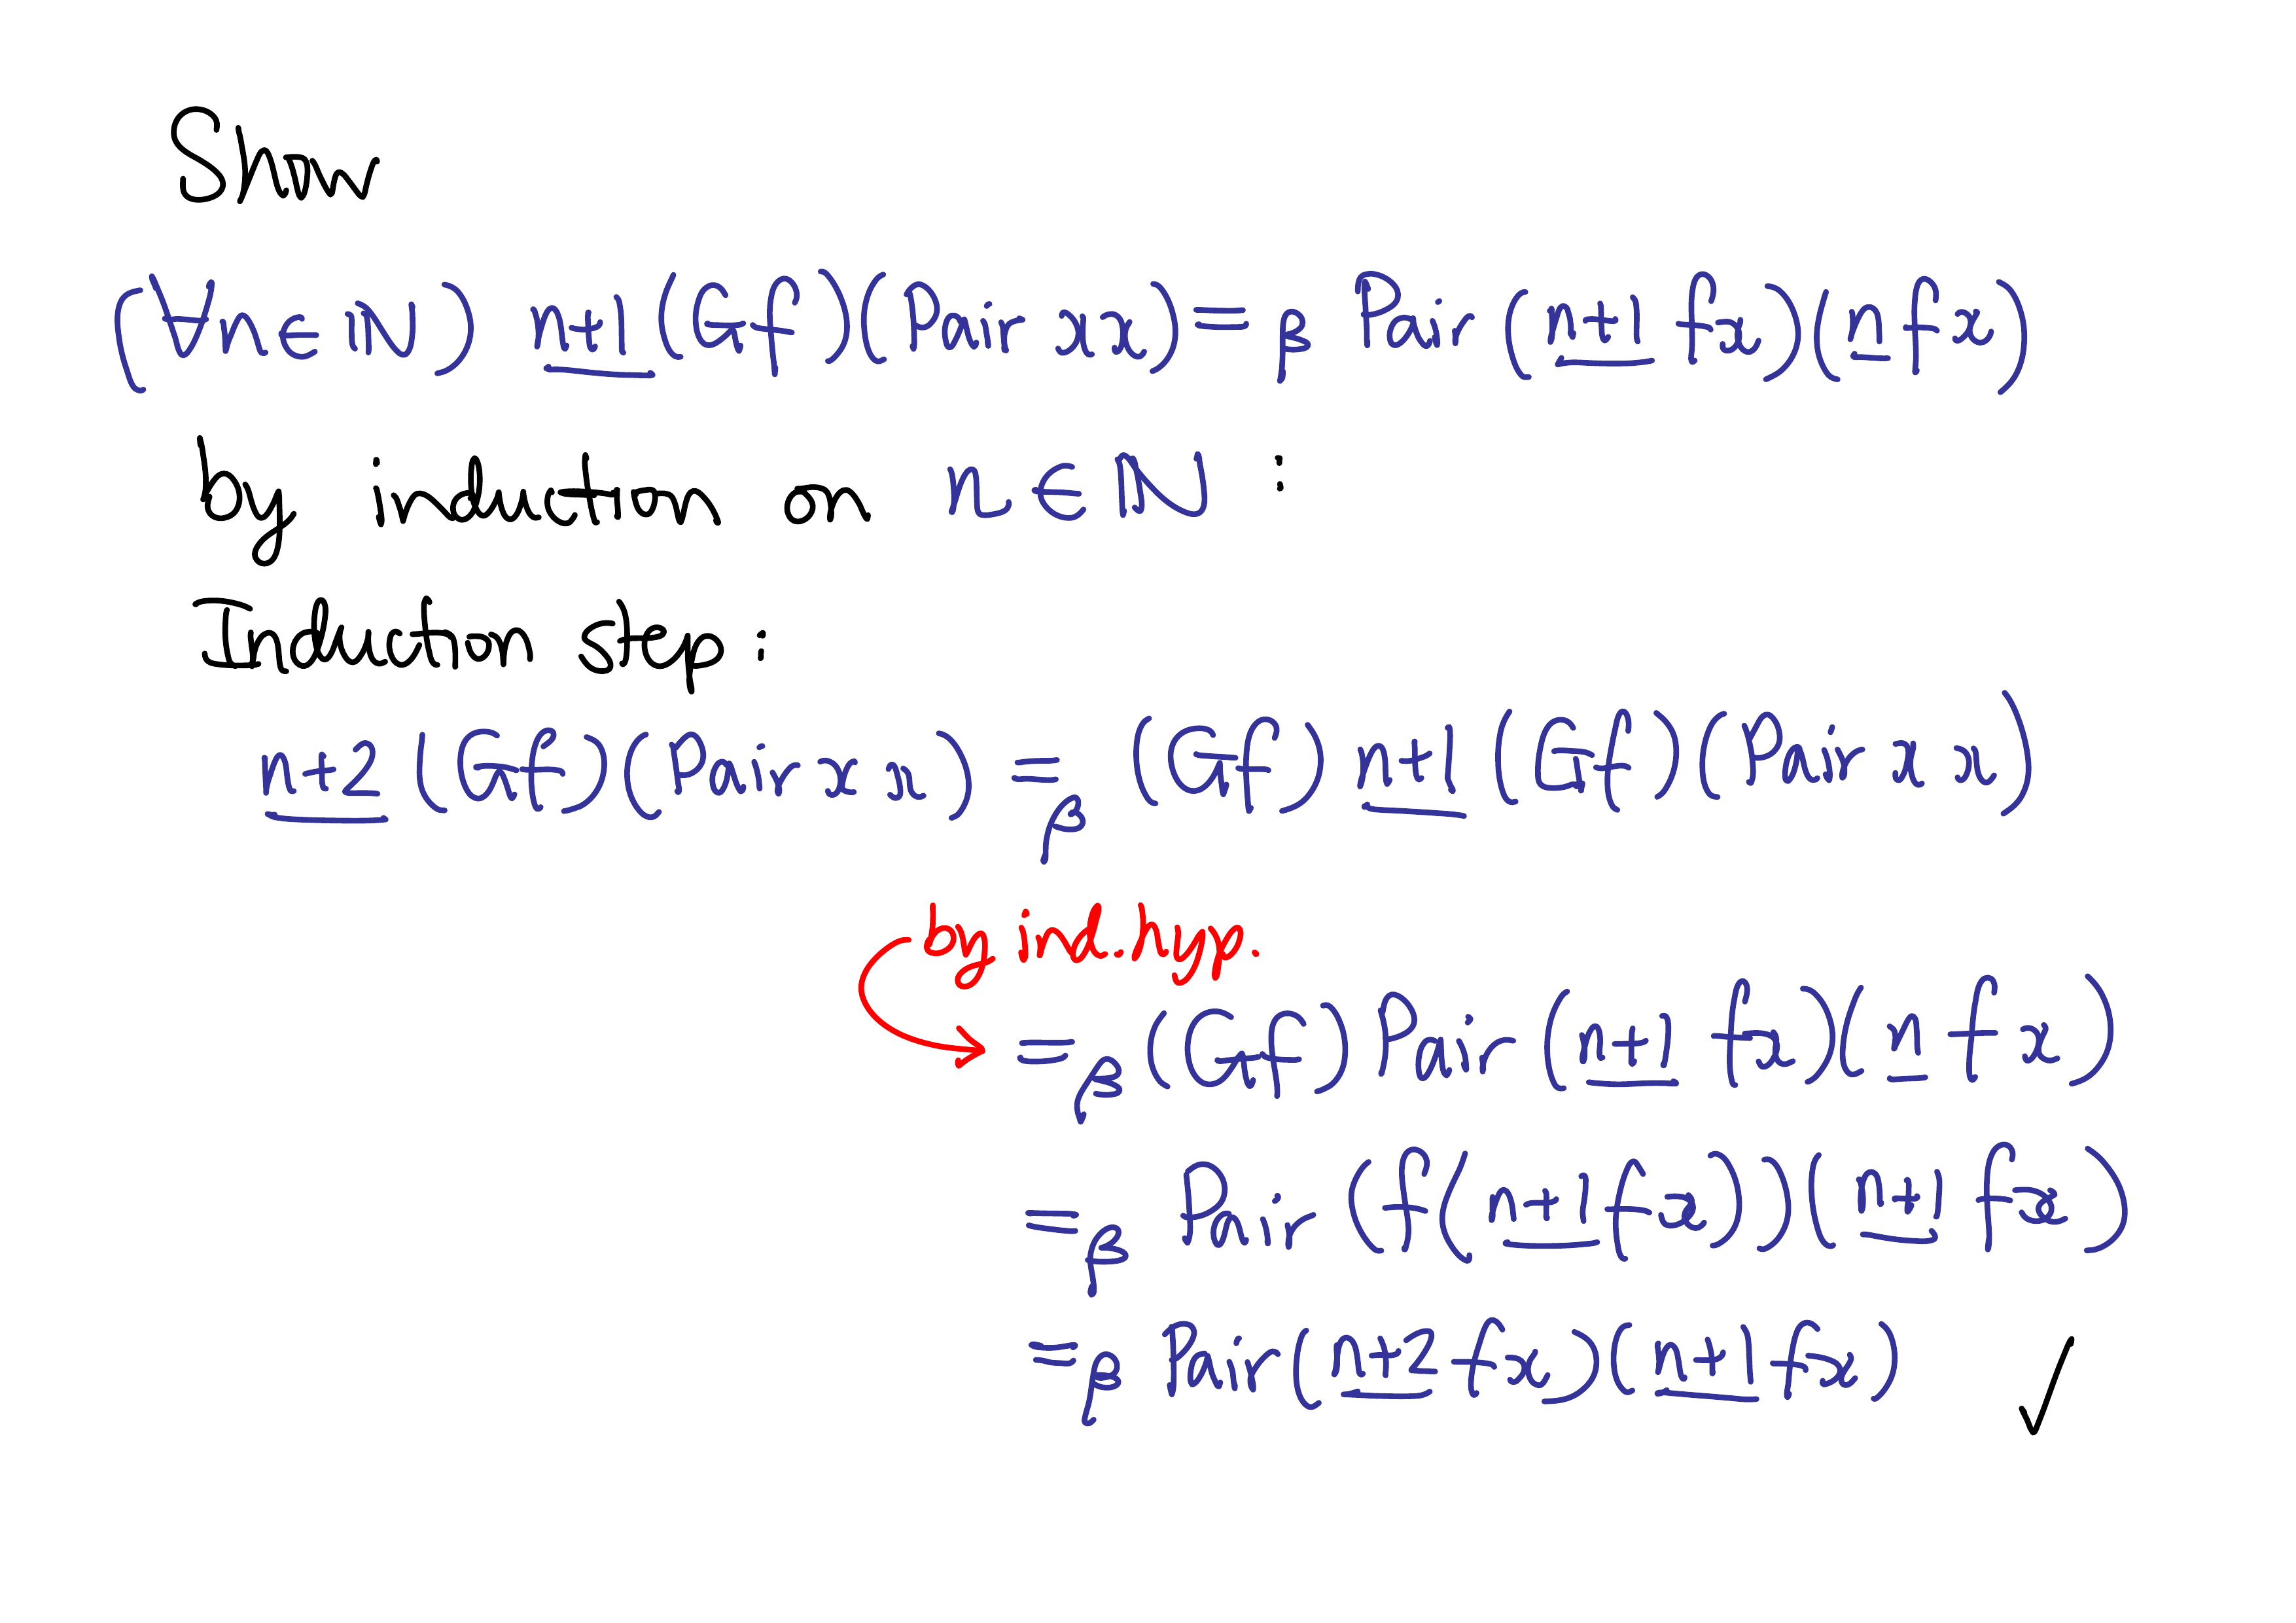 Show
(∀n∈ℕ) n+1 (G f)(Pair x x) =β Pair (n+1 f x)(n f x)
by induction on n ∈ ℕ :
Induction step:
n+2 (G f)(Pair x x) =β (G f) n+1 (G f)(Pair x x)
by ind. hyp.
=β (G f) Pair (n+1 f x)(n f x)
=β Pair (f(n+1 f x))(n+1 f x)
=β Pair (n+2 f x)(n+1 f x) ✓